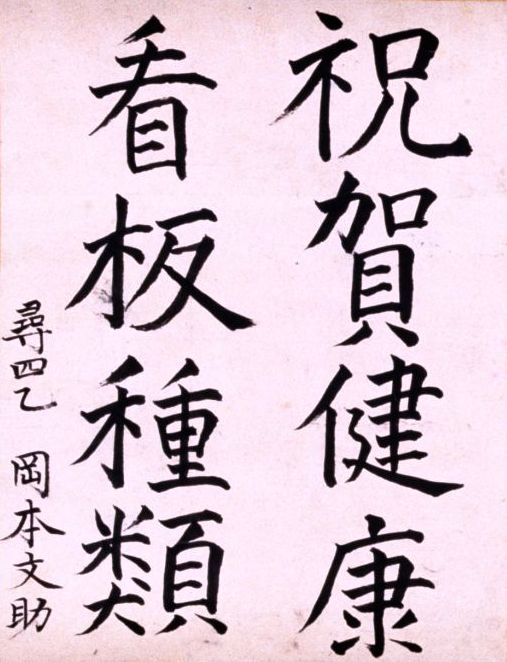 祝賀健康
看板種類
尋四乙 岡本文助